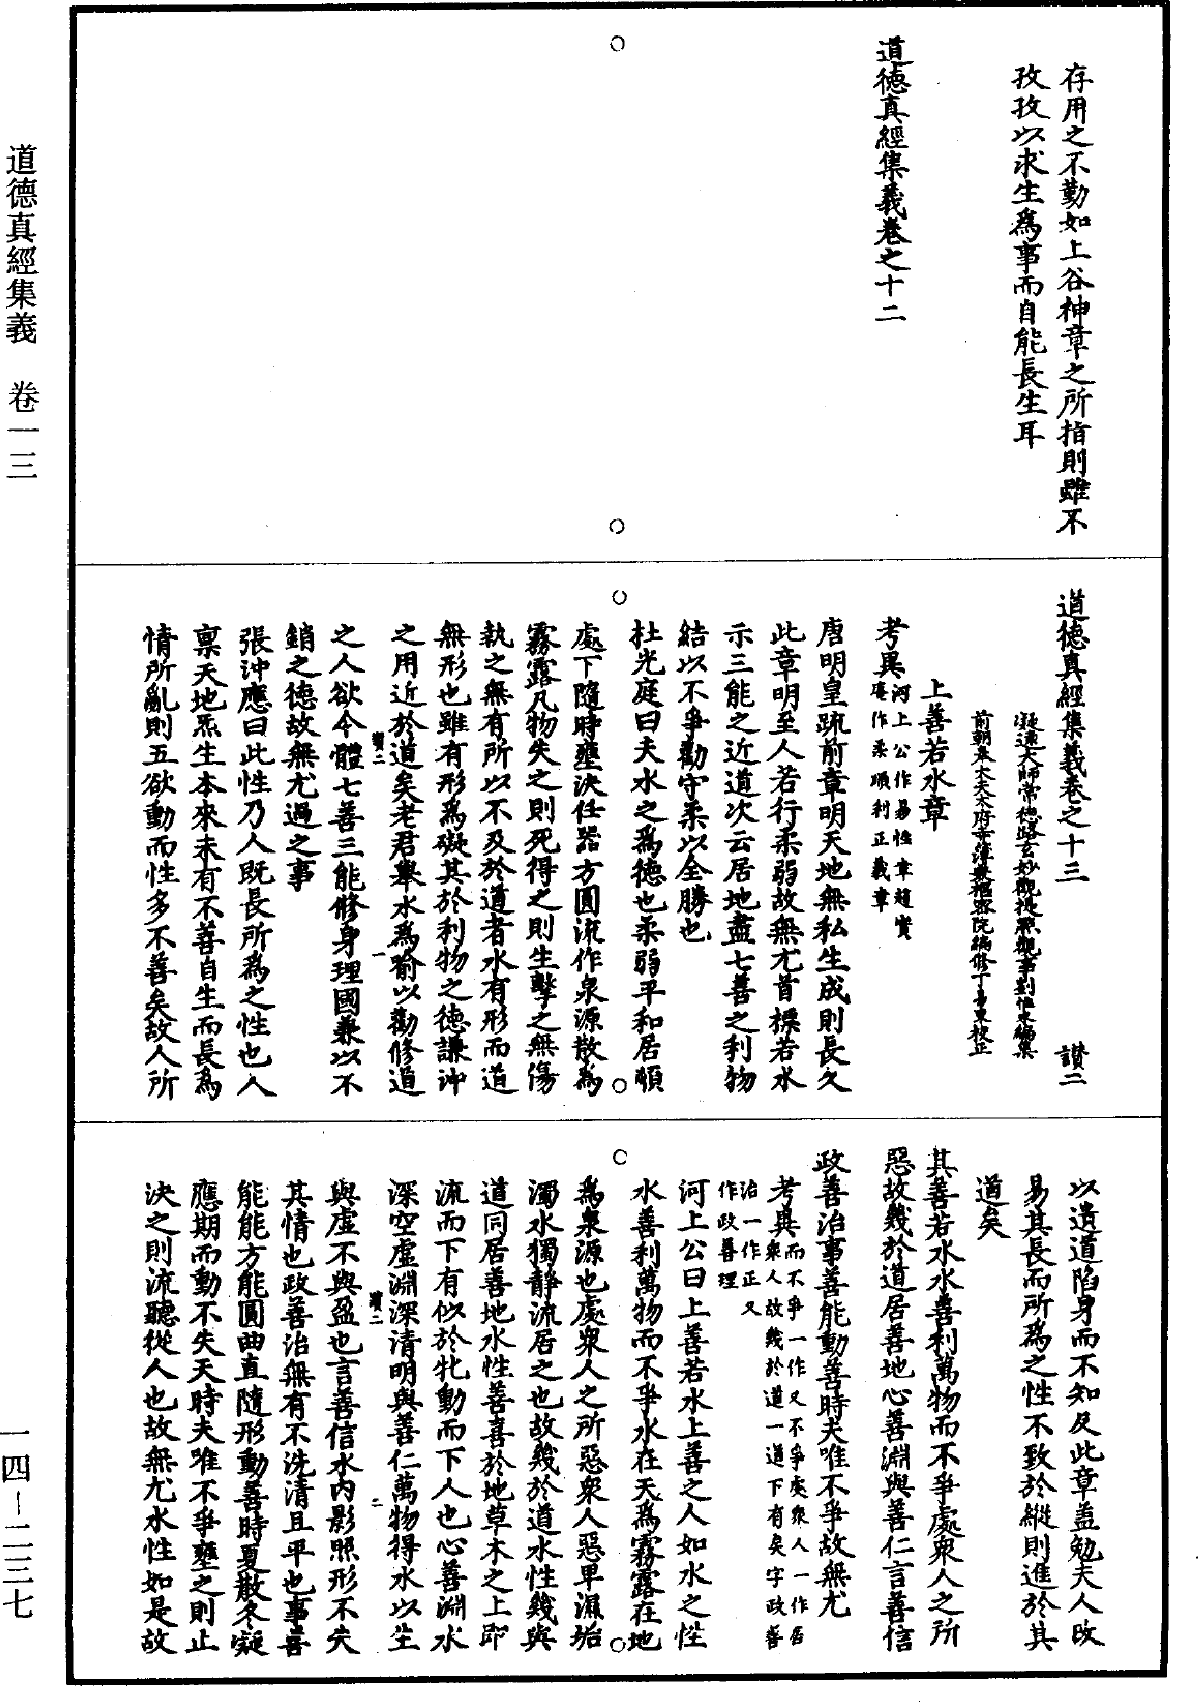 存用之不勤如上谷神章之所指則雖不
孜孜以求生爲事而自能長生耳
道德真經集義卷之十二
道德真經集義卷之十三
讃二
凝遠大師常德路玄妙觀提點觀事劉惟永編集
前朝奉大夫太府寺簿兼樞密院編修丁易東校正
上善若水章
考異河上公作易性章趙實
庵作柔順利正義章
唐明皇疏前章明天地無私生成則長久
此章明至人若行柔弱故無尤首標若水
示三能之近道次云居地盡七善之利物
結以不爭勸守柔以全勝也
杜光庭曰夫水之爲德也柔弱平和居順
處下隨時壅決任器方圓流作泉源散爲
霧露凡物失之則死得之則生擊之無傷
執之無有所以不及於道者水有形而道
無形也雖有形爲礙其於利物之德謙沖
之用近於道矣老君舉水爲喻以勸修道
讃二
一
之人欲令體七善三能修身理國兼以不
銷之德故無尤過之事
張沖應曰此性乃人既長所爲之性也人
稟天地炁生本來未有不善自生而長爲
情所亂則五欲動而性多不善矣故人所
以遺道陷身而不知反此章蓋勉夫人改
易其長而所爲之性不致於縱則進於其
道矣
其善若水水善利萬物而不爭處衆人之所
惡故幾於道居善地心善淵與善仁言善信
政善治事善能動善時夫唯不爭故無尤
考異而不爭一作又不爭處衆人一作居
衆人故幾於道一道下有矣字政善
治一作正又
作政善理
河上公曰上善若水上善之人如水之性
水善利萬物而不爭水在天爲霧露在地
爲泉源也處衆人之所惡衆人惡卑濕垢
濁水獨靜流居之也故幾於道水性幾與
道同居善地水性善喜於地草木之上即
流而下有似於牝動而下人也心善淵水
深空虛淵深清明與善仁萬物得水以生
讃二
二
與虛不與盈也言善信水內影照形不失
其情也政善治無有不洗清且平也事善
能能方能圓曲直隨形動善時夏散冬凝
應期而動不失天時夫唯不爭壅之則止
決之則流聽從人也故無尤水性如是故
道德真經集義　卷一三
一四—二三七